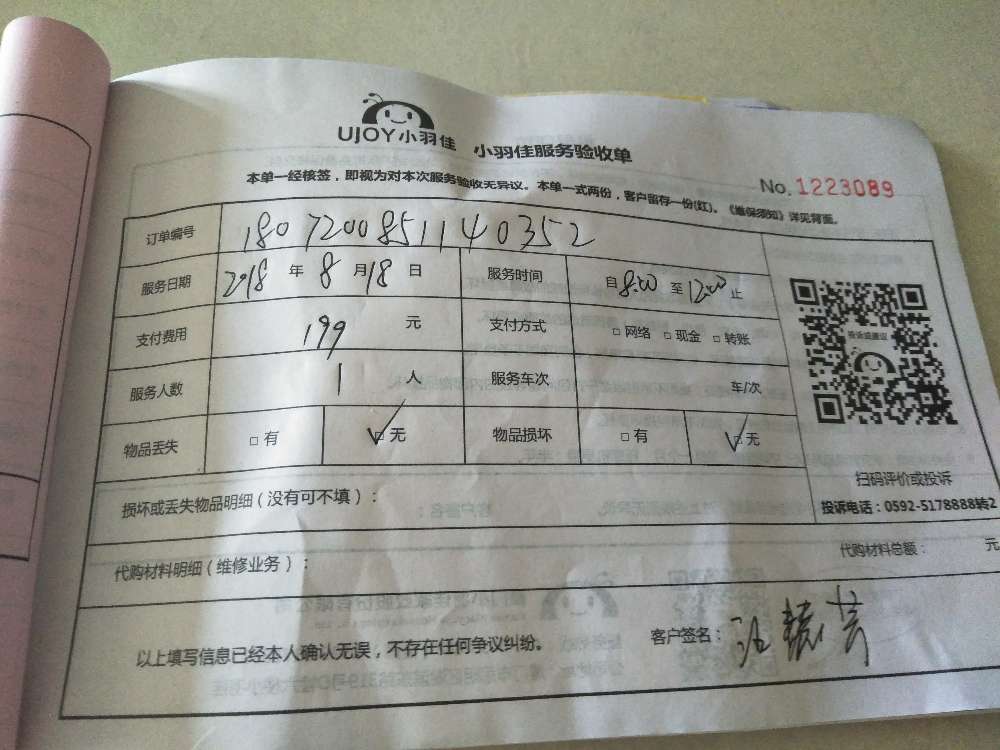 UJOY小羽佳 小羽佳服务验收单
No. 1223089
本单一经核签，即视为对本次服务验收无异议。本单一式两份，客户留存一份(红)。《维保须知》详见背面。
订单编号 1807200851140352
服务日期 2018 年 8 月 18 日 服务时间 自 8:00 至 12:00 止
支付费用 199 元 支付方式 □网络 □现金 □转账
服务人数 1 人 服务车次 车/次
物品丢失 □有 ☑无 物品损坏 □有 ☑无
投诉或建议
扫码评价或投诉
投诉电话：0592-5178888转2
损坏或丢失物品明细（没有可不填）：
代购材料明细（维修业务）： 代购材料总额： 元
以上填写信息已经本人确认无误，不存在任何争议纠纷。 客户签名：